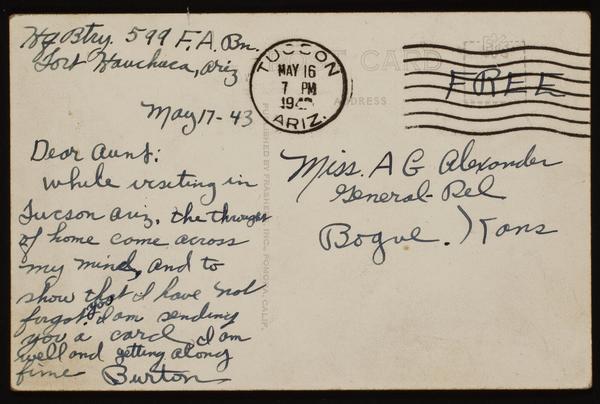 Hq Btry. 599 F.A. Bn.
Fort Hauchuca, Ariz
May 17-43
Dear Aunt:
while viseting in
Tucson Ariz. the throught
of home come across
my mind, and to
show that I have not
forgot you I am sending
you a card. I am
well and getting along
fine Burton
POST CARD
ADDRESS
TUCSON
MAY 16
7 PM
ARIZ.
FREE
Miss. A G Alexander
General-Del
Bogue. Kans
PUBLISHED BY FRASHERS INC., POMONA, CALIF.